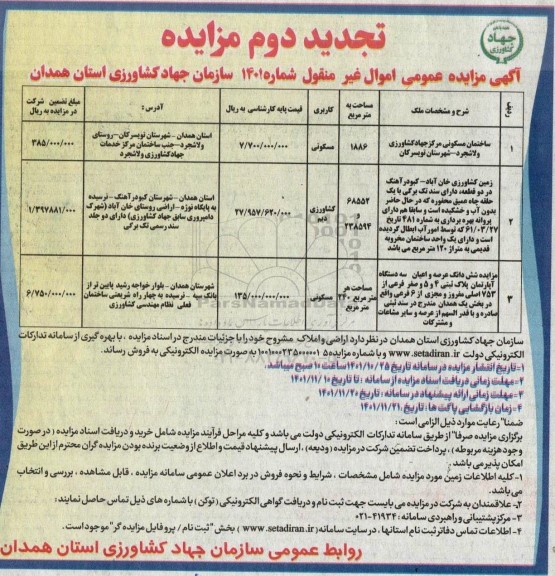 جهاد کشاورزی
تجدید دوم مزایده
آگهی مزایده عمومی اموال غیر منقول شماره ۱۴۰۱ سازمان جهاد کشاورزی استان همدان
ردیف
شرح و مشخصات ملک
مساحت به متر مربع
کاربری
قیمت پایه کارشناسی به ریال
آدرس :
مبلغ تضمین شرکت در مزایده به ریال
۱
ساختمان مسکونی مرکز جهاد کشاورزی
ولاشجرد-شهرستان تویسرکان
۱۸۸۶
مسکونی
۷/۷۰۰/۰۰۰/۰۰۰
استان همدان - شهرستان تویسرکان-روستای
ولاشجرد-جنب ساختمان مرکز خدمات
جهادکشاورزی ولاشجرد
۳۸۵/۰۰۰/۰۰۰
۲
زمین کشاورزی خان آباد- کبودرآهنگ
در دو قطعه، دارای سند تک برگی با یک
حلقه چاه عمیق محفوره که در حال حاضر
بدون آب و خشکیده است و سابقا هم دارای
پروانه بهره برداری به شماره ۴۸۱ تاریخ
۶۱/۰۳/۲۷ که توسط امور آب ابطال گردیده
است و دارای یک واحد ساختمان مخروبه
قدیمی به متراژ ۱۲۰ متر مربع می باشد.
۶۸۵۵۲
۲۳۸۵۹۴
کشاورزی
دیم
۲۷/۹۵۷/۶۲۰/۰۰۰
استان همدان - شهرستان کبودرآهنگ - نرسیده
به پایگاه نوژه - اراضی روستای خان آباد (شهرک
دامپروری سابق جهاد کشاورزی) دارای دو جلد
سند رسمی تک برگی
۱/۳۹۷۸۸۱/۰۰۰
۳
مزایده شش دانگ عرصه و اعیان سه دستگاه
آپارتمان پلاک ثبتی ۴ و ۵ و صفر فرعی از
۷۵۳ اصلی مفروز و مجزی از ۶ فرعی واقع
در بخش یک همدان مندرج در سند ثبتی
صادره و با قدر السهم از عرصه و سایر مشاعات
و مشترکات
مساحت هر
متر مربع ۲۴۰
متر مربع
مسکونی
۱۳۵/۰۰۰/۰۰۰/۰۰۰
شهرستان همدان - بلوار خواجه رشید پایین تر از
بانک سپه - نرسیده به چهار راه شریعتی ساختمان
فعلی نظام مهندسی کشاورزی
۶/۷۵۰/۰۰۰/۰۰۰
سازمان جهاد کشاورزی استان همدان در نظر دارد اراضی و املاک مشروح خود را با جزئیات مندرج در اسناد مزایده ، با بهره گیری از سامانه تدارکات
الکترونیکی دولت www.setadiran.ir و با شماره مزایده ۱۰۰۱۰۰۰۲۳۵۰۰۰۰۰۱۵ به صورت مزایده الکترونیکی به فروش رساند.
۱-تاریخ انتشار مزایده در سامانه تاریخ ۱۴۰۱/۱۰/۲۵ ساعت ۱۰ صبح میباشد.
۲- مهلت زمانی دریافت اسناد مزایده از سامانه : تا تاریخ ۱۴۰۱/۱۱/۱۰
۳- مهلت زمانی ارائه پیشنهاد در سامانه : تاریخ ۱۴۰۱/۱۱/۲۰
۴- زمان بازگشایی پاکت ها : تاریخ ۱۴۰۱/۱۱/۲۱
ضمنا" رعایت موارد ذیل الزامی است :
برگزاری مزایده صرفا" از طریق سامانه تدارکات الکترونیکی دولت می باشد و کلیه مراحل فرآیند مزایده شامل خرید و دریافت اسناد مزایده (در صورت
وجود هزینه مربوطه) ، پرداخت تضمین شرکت در مزایده (ودیعه) ، ارسال پیشنهاد قیمت و اطلاع از وضعیت برنده بودن مزایده گران محترم از این طریق
امکان پذیر می باشد.
۱- کلیه اطلاعات زمین مورد مزایده شامل مشخصات ، شرایط و نحوه فروش در برد اعلان عمومی سامانه مزایده ، قابل مشاهده ، بررسی و انتخاب
می باشد.
۲- علاقمندان به شرکت در مزایده می بایست جهت ثبت نام و دریافت گواهی الکترونیکی (توکن) با شماره های ذیل تماس حاصل نمایند :
۳- مرکز پشتیبانی و راهبردی سامانه : ۴۱۹۳۴-۰۲۱
۴- اطلاعات تماس دفاتر ثبت نام استانها ، در سایت سامانه (www.setadiran.ir) بخش "ثبت نام / پروفایل مزایده گر" موجود است.
روابط عمومی سازمان جهاد کشاورزی استان همدان